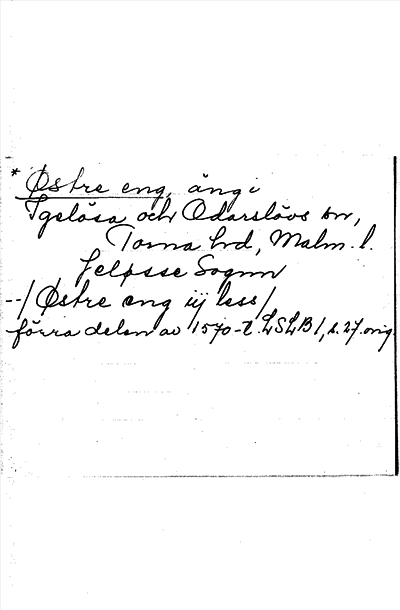 * Østre eng, äng i
Igelösa och Odarslövs snr,
Torna hrd, Malm. l.
Jeløsse Sognn
--/Østre eng iij less/
förra delen av 1570-t. LSLB I, s. 27. orig.